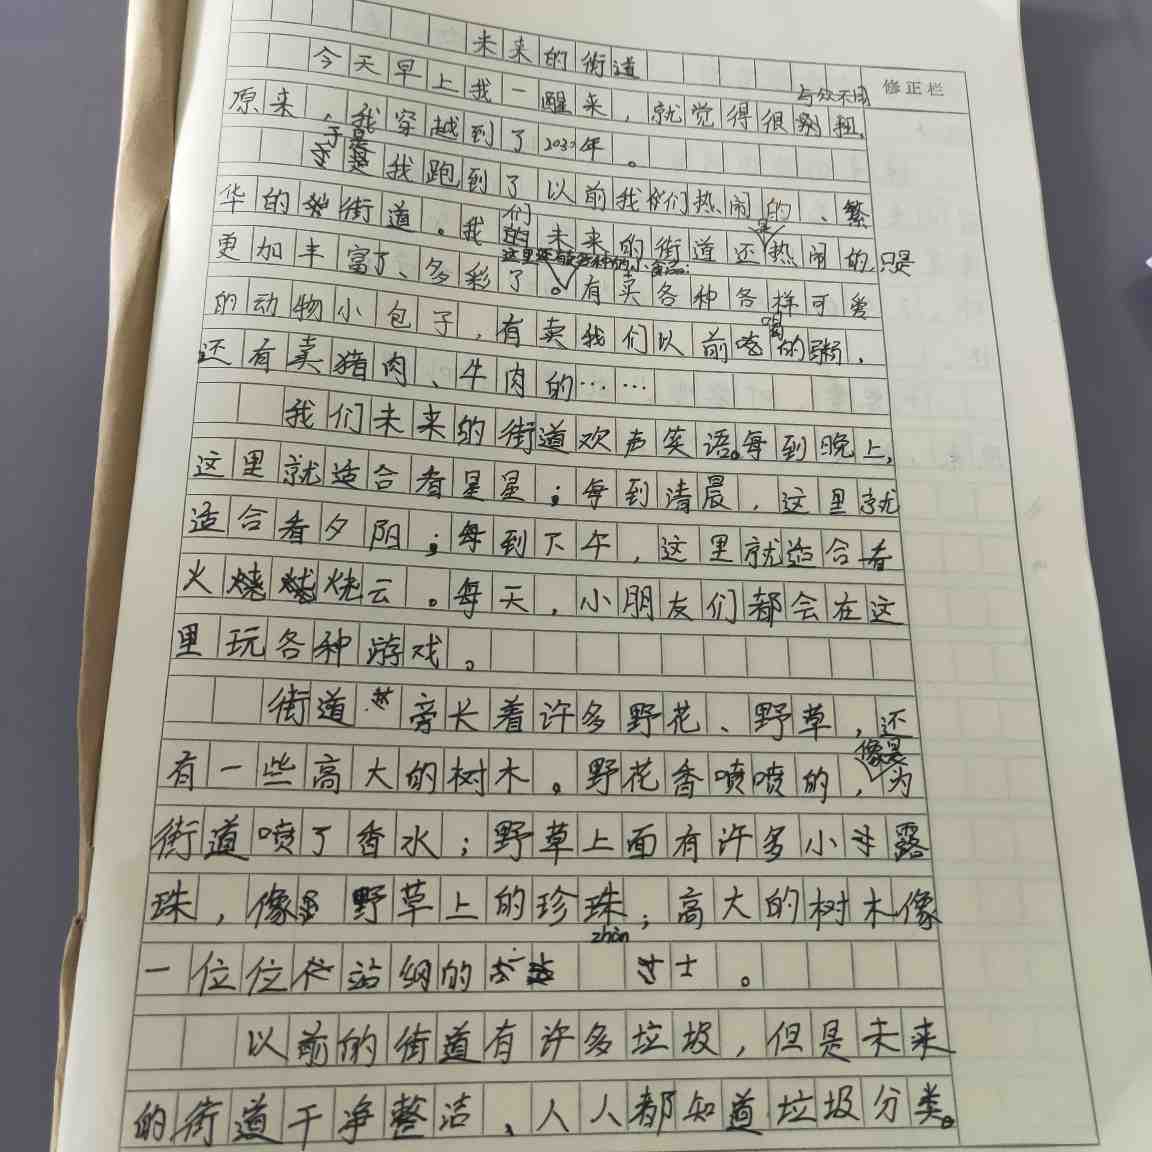 未来的街道
修正栏
今天早上我一醒来，就觉得很别扭，
与众不同
原来，我穿越到了2030年。
于是
我跑到了以前我们热闹的、繁
华的街道。我们未来的街道还是热闹的，只是
更加丰富了、多彩了。有卖各种各样可爱
这里还有各种的小食品：
的动物小包子，有卖我们以前喝的粥，
还有卖猪肉、牛肉的……
我们未来的街道欢声笑语。每到晚上，
这里就适合看星星；每到清晨，这里就
适合看夕阳；每到下午，这里就适合看
火烧云。每天，小朋友们都会在这
里玩各种游戏。
街道旁长着许多野花、野草，还
有一些高大的树木。野花香喷喷的，像是为
街道喷了香水；野草上面有许多小露
珠，像野草上的珍珠；高大的树木像
一位位站岗的士。
zhàn
以前的街道有许多垃圾，但是未来
的街道干净整洁，人人都知道垃圾分类。